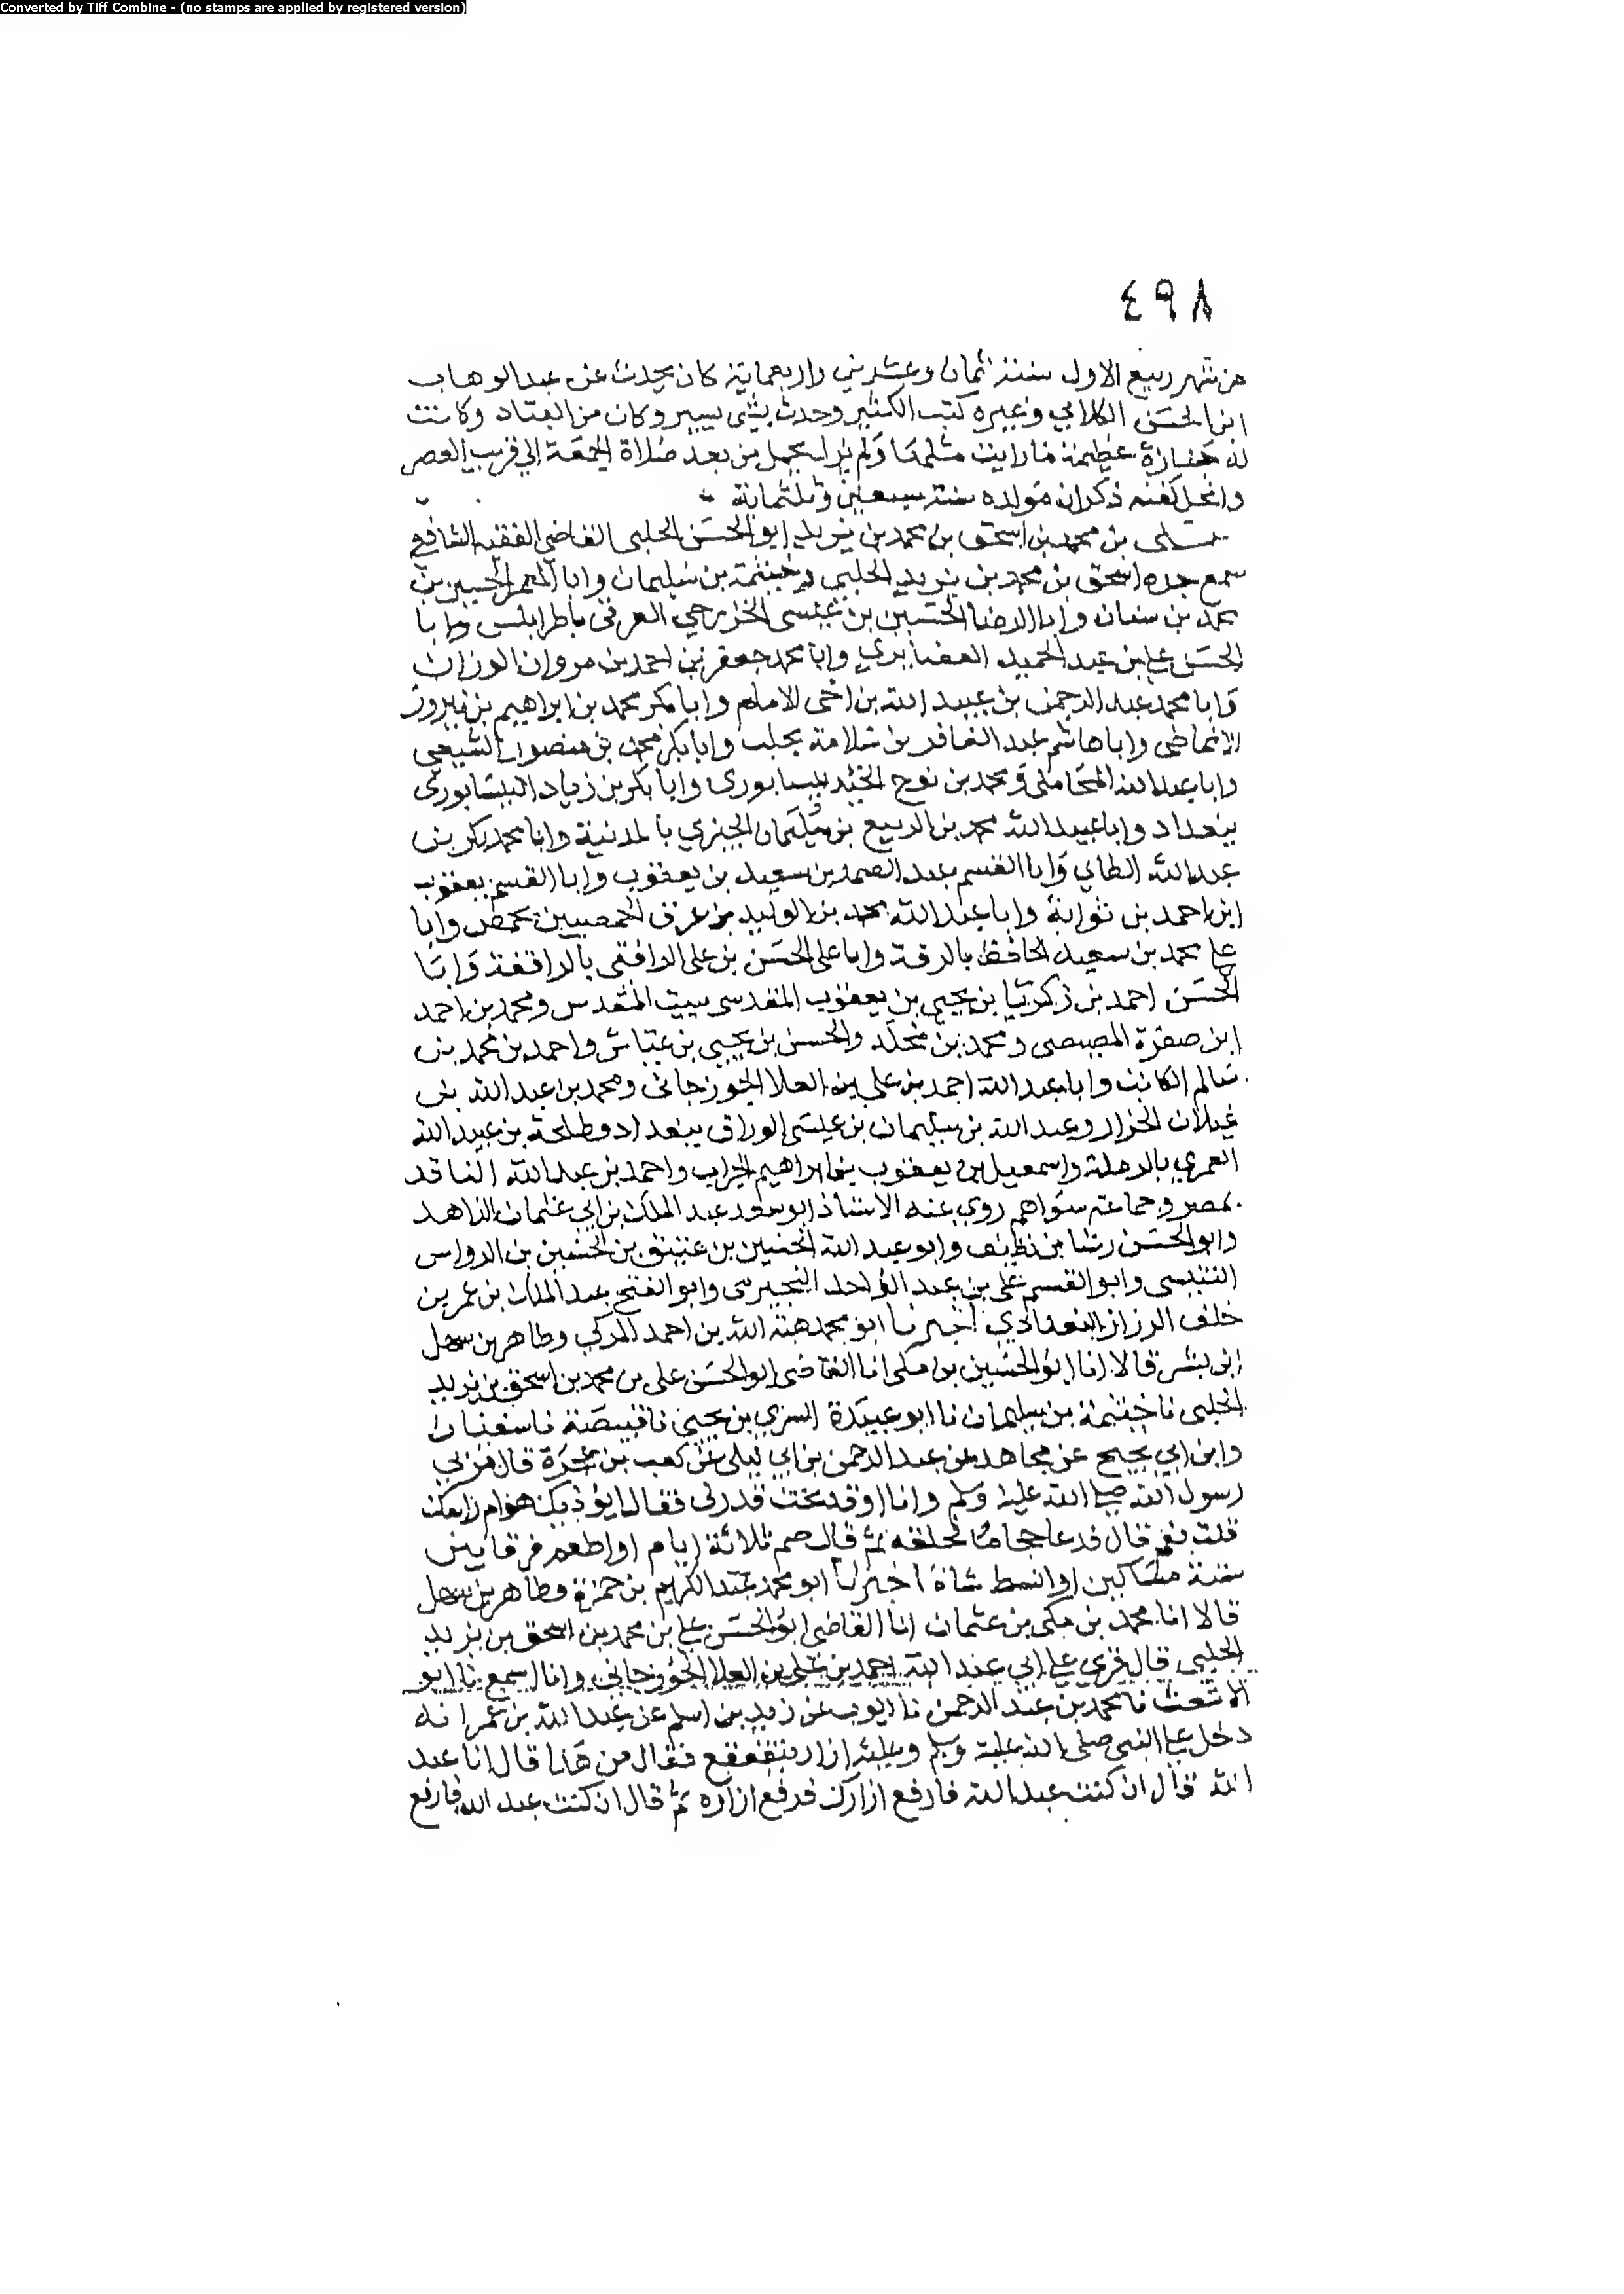 Converted by Tiff Combine - (no stamps are applied by registered version)
٤٩٨
من شهر ربيع الاول سنة ثمان وعشرين واربعماية كان يحدث عن عبد الوهاب
ابن الحسن الكلابي وغيره كتب الكثير وحدث بشى يسير وكان من العباد وكانت
له جنازة عظيمة ما رايت مثلها ولم يزل يحمل من بعد صلاة الجمعة الى قريب العصر
وانحل كفنه ذكر ان مولده سنة سبعين وثلثماية
علي بن محمد بن اسحق بن محمد بن يزيد ابو الحسن الحلبي القاضي الفقيه الشافعي
سمع جده اسحق بن محمد بن يزيد الحلبي وخيثمة بن سليمان وابا المعمر الحسين بن
محمد بن سنان وابا الرضا الحسين بن عيسى الخزرجي العرقى باطرابلس وابا
الحسن علي بن عبد الحميد الغضايري وابا محمد جعفر بن احمد بن مروان الوزان
وابا محمد عبد الرحمن بن عبيد الله بن اخى الامام وابا بكر محمد بن ابراهيم بن نيروز
الانماطى وابا هاشم عبد الغافر بن سلامة بحلب وابا بكر محمد بن منصور الشيعي
وابا عبد الله المحاملى ومحمد بن نوح الجنديسابورى وابا بكر بن زياد النيسابورى
ببغداد وابا عبيد الله محمد بن الربيع بن سليمان الجيزي بالمدينة وابا محمد بكر بن
عبد الله الطاي وابا القسم عبد الصمد بن سعيد بن يعقوب وابا القسم يعقوب
ابن احمد بن ثوابة وابا عبد الله محمد بن الوليد بن عرق الحمصيين بحمص وابا
علي محمد بن سعيد الحافظ بالرقة وابا على الحسن بن على الرافقى بالرافقة وابا
الحسن احمد بن زكريا بن يحيى بن يعقوب المقدسى ببيت المقدس ومحمد بن احمد
ابن صفرة المصيصى ومحمد بن مخلد والحسن بن يحيى بن عياش واحمد بن محمد بن
سالم الكاتب وابا عبد الله احمد بن علي بن العلا الجوزجانى ومحمد بن عبد الله بن
غيلان الخزاز وعبد الله بن سليمان بن عيسى الوراق ببغداد وطلحة بن عبيد الله
العمري بالرملة واسمعيل بن يعقوب بن ابراهيم الجراب واحمد بن عبد الله الناقد
بمصر وجماعة سواهم روى عنه الاستاذ ابو سعد عبد الملك بن ابي عثمان الزاهد
وابو الحسن رشا بن نظيف وابو عبد الله الحسين بن عتيق بن الحسين بن الرواس
التنيسى وابو القسم على بن عبد الواحد النجيرمى وابو الفتح عبد الملك بن عمر بن
خلف الرزاز البغدادي اخبرنا ابو محمد هبة الله بن احمد المزكي وطاهر بن سهل
ابن بشر قالا انا ابو الحسين بن مكى انا القاضى ابو الحسن على بن محمد بن اسحق بن يزيد
الحلبى نا خيثمة بن سليمان نا ابو عبيدة السري بن يحيى نا قبيصة نا سفيان
وابن ابي نجيح عن مجاهد عن عبد الرحمن بن ابي ليلى عن كعب بن عجرة قال مر بي
رسول الله صلى الله عليه وسلم وانا اوقد تحت قدر لى فقال ايوذيك هوام راسك
قلت نعم قال فدعا حجاما فحلقه ثم قال صم ثلاثة ايام او اطعم فرقا بين
ستة مساكين او انسك شاة اخبرنا ابو محمد عبد الكريم بن حمزة وطاهر بن سهل
قالا انا محمد بن مكى بن عثمان انا القاضى ابو الحسن علي بن محمد بن اسحق بن يزيد
الحلبي قال قري علي ابي عبد الله احمد بن علي بن العلا الجوزجاني وانا اسمع نا ابو
الاشعث نا محمد بن عبد الرحمن نا ايوب عن زيد بن اسلم عن عبد الله بن عمر انه
دخل علي النبي صلى الله عليه وسلم وعليه ازار يتقعقع فقال من هذا قال انا عبد
الله قال ان كنت عبد الله فارفع ازارك فرفع ازاره ثم قال ان كنت عبد الله فارفع